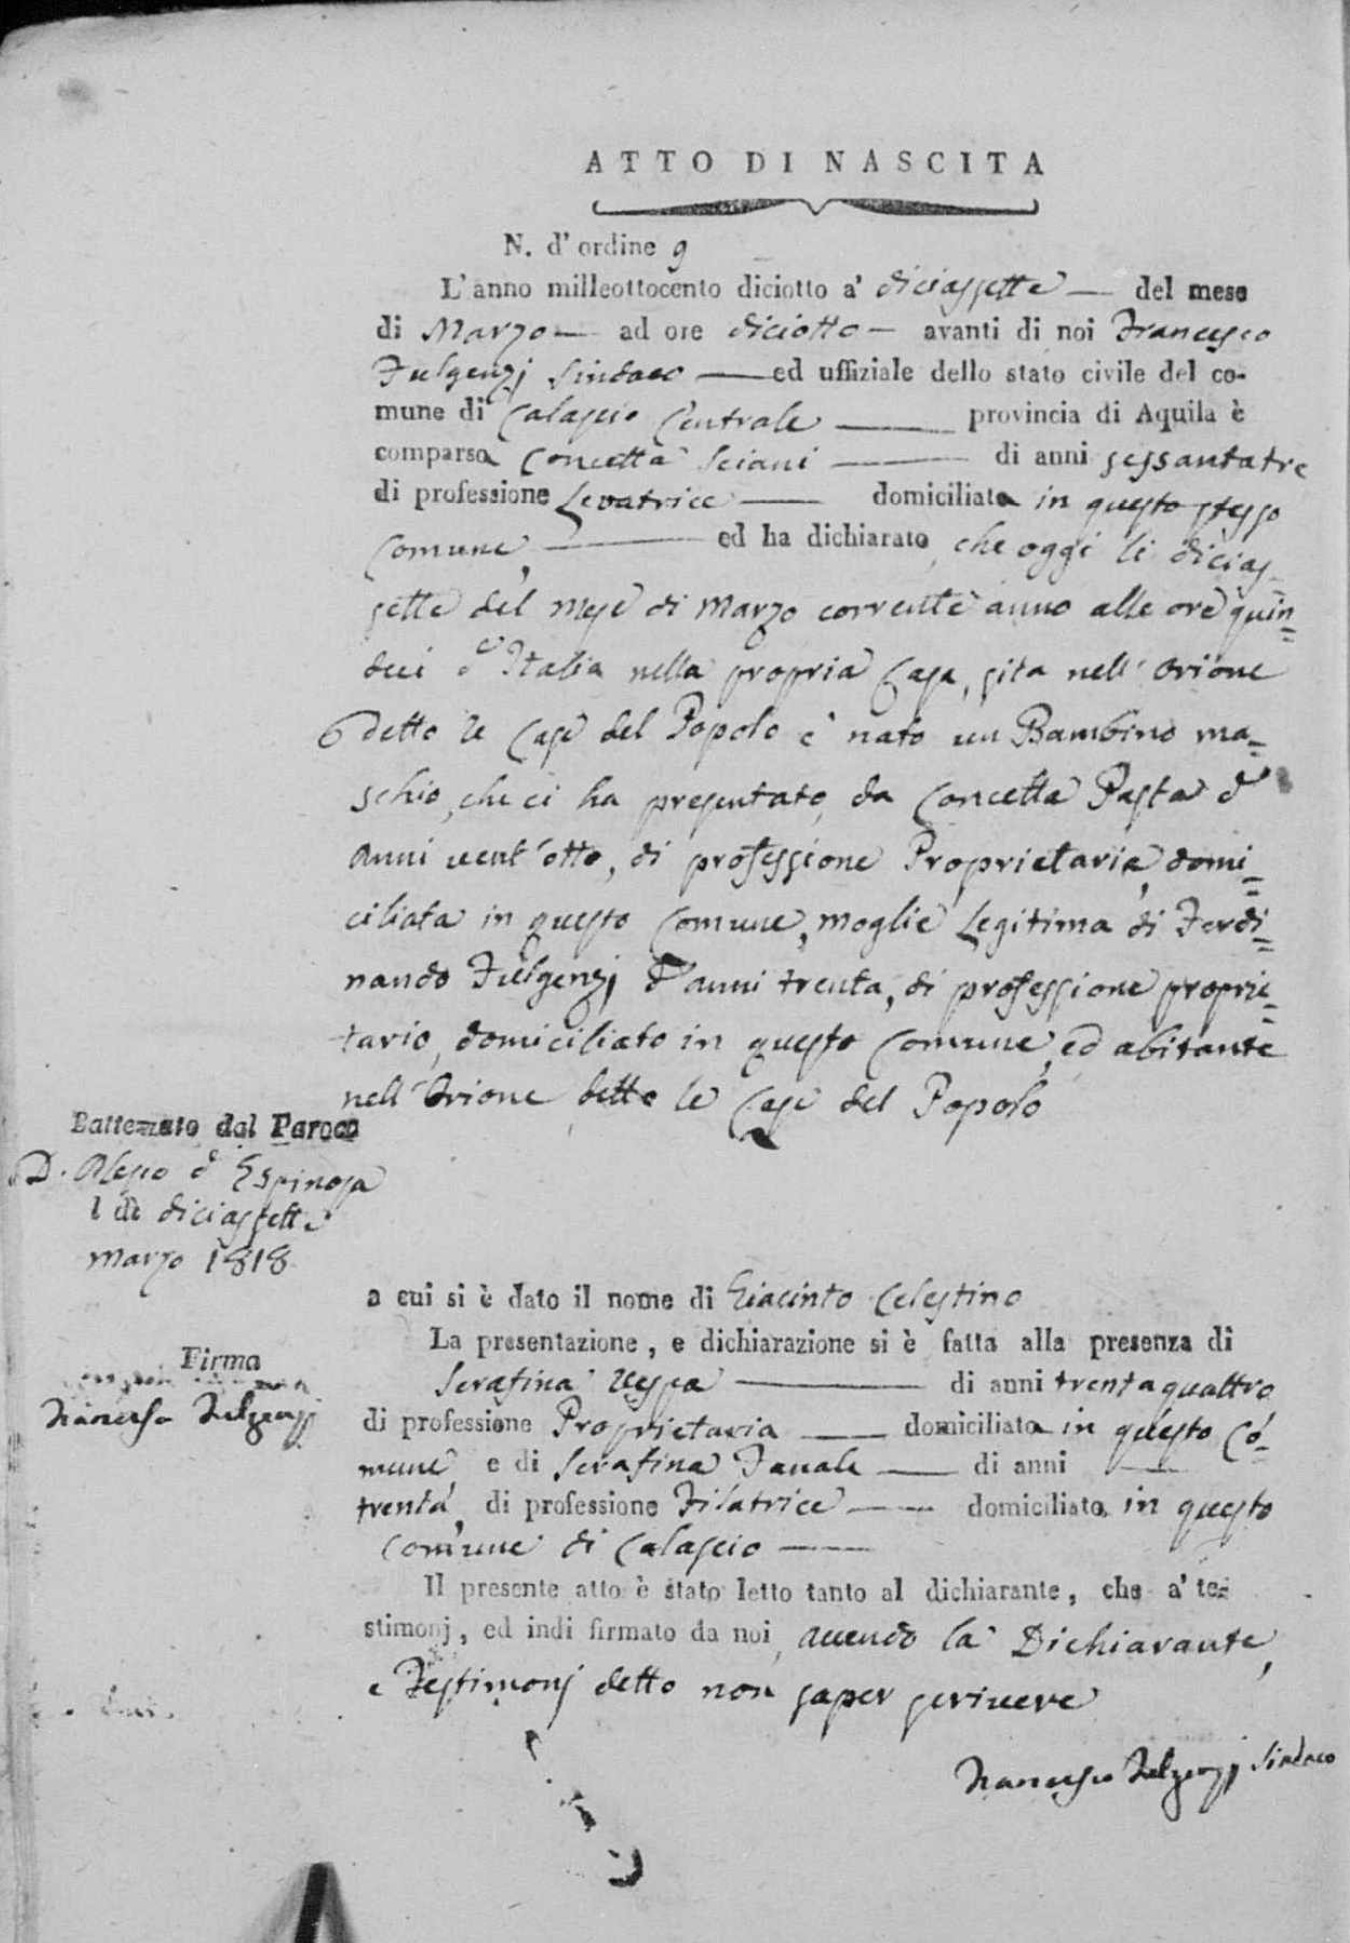 ATTO DI NASCITA
N. d'ordine 9
L'anno milleottocento diciotto a' diciassette — del mese
di Marzo — ad ore diciotto — avanti di noi Francesco
Fulgenzj Sindaco — ed uffiziale dello stato civile del co-
mune di Calascio Centrale — provincia di Aquila è
comparsa Concetta Sciani — di anni sessantatre
di professione Levatrice — domiciliata in questo stesso
Comune, — ed ha dichiarato, che oggi li dicias
sette del mese di Marzo corrente anno alle ore quin=
deci d'Italia nella propria Casa, sita nell'Orione
detto le Case del Popolo è nato un Bambino ma=
schio, che ci ha presentato, da Concetta Pasta d'
anni vent'otto, di professione Proprietaria, domi=
ciliata in questo Comune, moglie Legitima di Ferdi=
nando Fulgenzj d'anni trenta, di professione proprie=
tario, domiciliato in questo Comune, ed abitante
nell'Orione detto le Case del Popolo
Battezzato dal Paroco
D. Alesio d'Espinosa
li diciassette
Marzo 1818
a cui si è dato il nome di Giacinto Celestino
La presentazione, e dichiarazione si è fatta alla presenza di
Serafina Vespa — di anni trentaquattro
di professione Proprietaria — domiciliata in questo Co=
mune, e di Serafina Fanale — di anni —
trenta, di professione Filatrice — domiciliata in questo
Comune di Calascio —
Firma
Francesco Fulgenzj
Il presente atto è stato letto tanto al dichiarante, che a' te=
stimonj, ed indi firmato da noi, avendo la Dichiarante,
e Testimonj detto non saper scrivere
Francesco Fulgenzj Sindaco